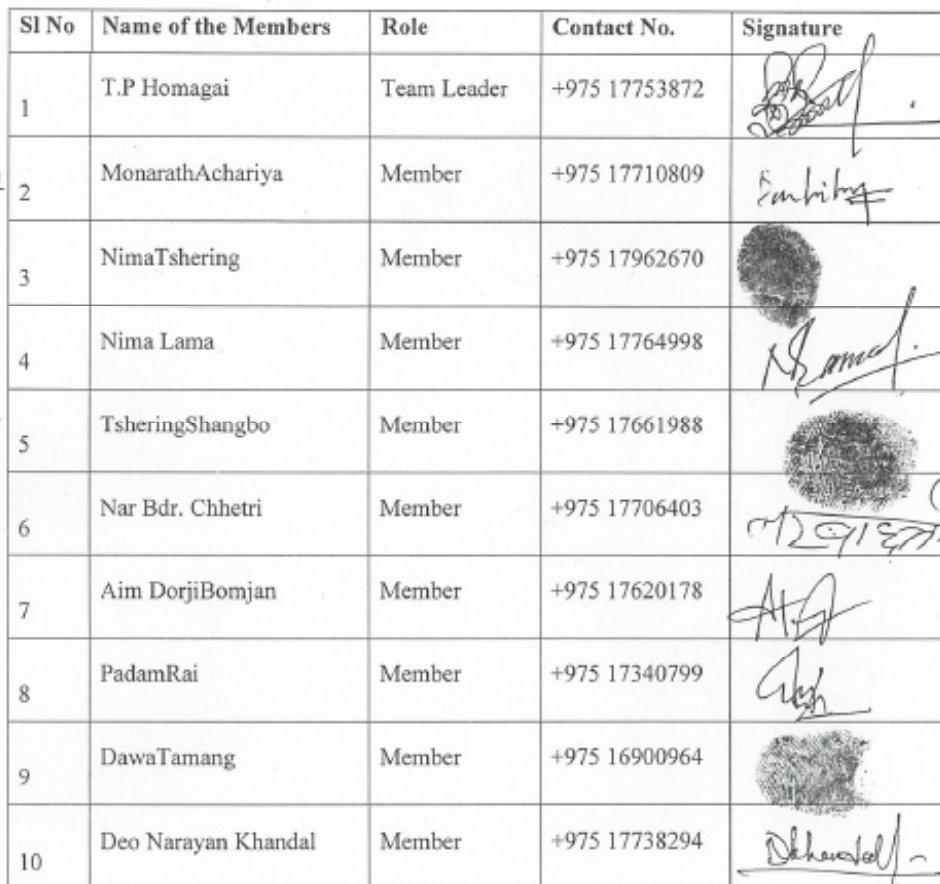 Sl No Name of the Members Role Contact No. Signature
1 T.P Homagai Team Leader +975 17753872
2 MonarathAchariya Member +975 17710809
3 NimaTshering Member +975 17962670
4 Nima Lama Member +975 17764998
5 TsheringShangbo Member +975 17661988
6 Nar Bdr. Chhetri Member +975 17706403
7 Aim DorjiBomjan Member +975 17620178
8 PadamRai Member +975 17340799
9 DawaTamang Member +975 16900964
10 Deo Narayan Khandal Member +975 17738294